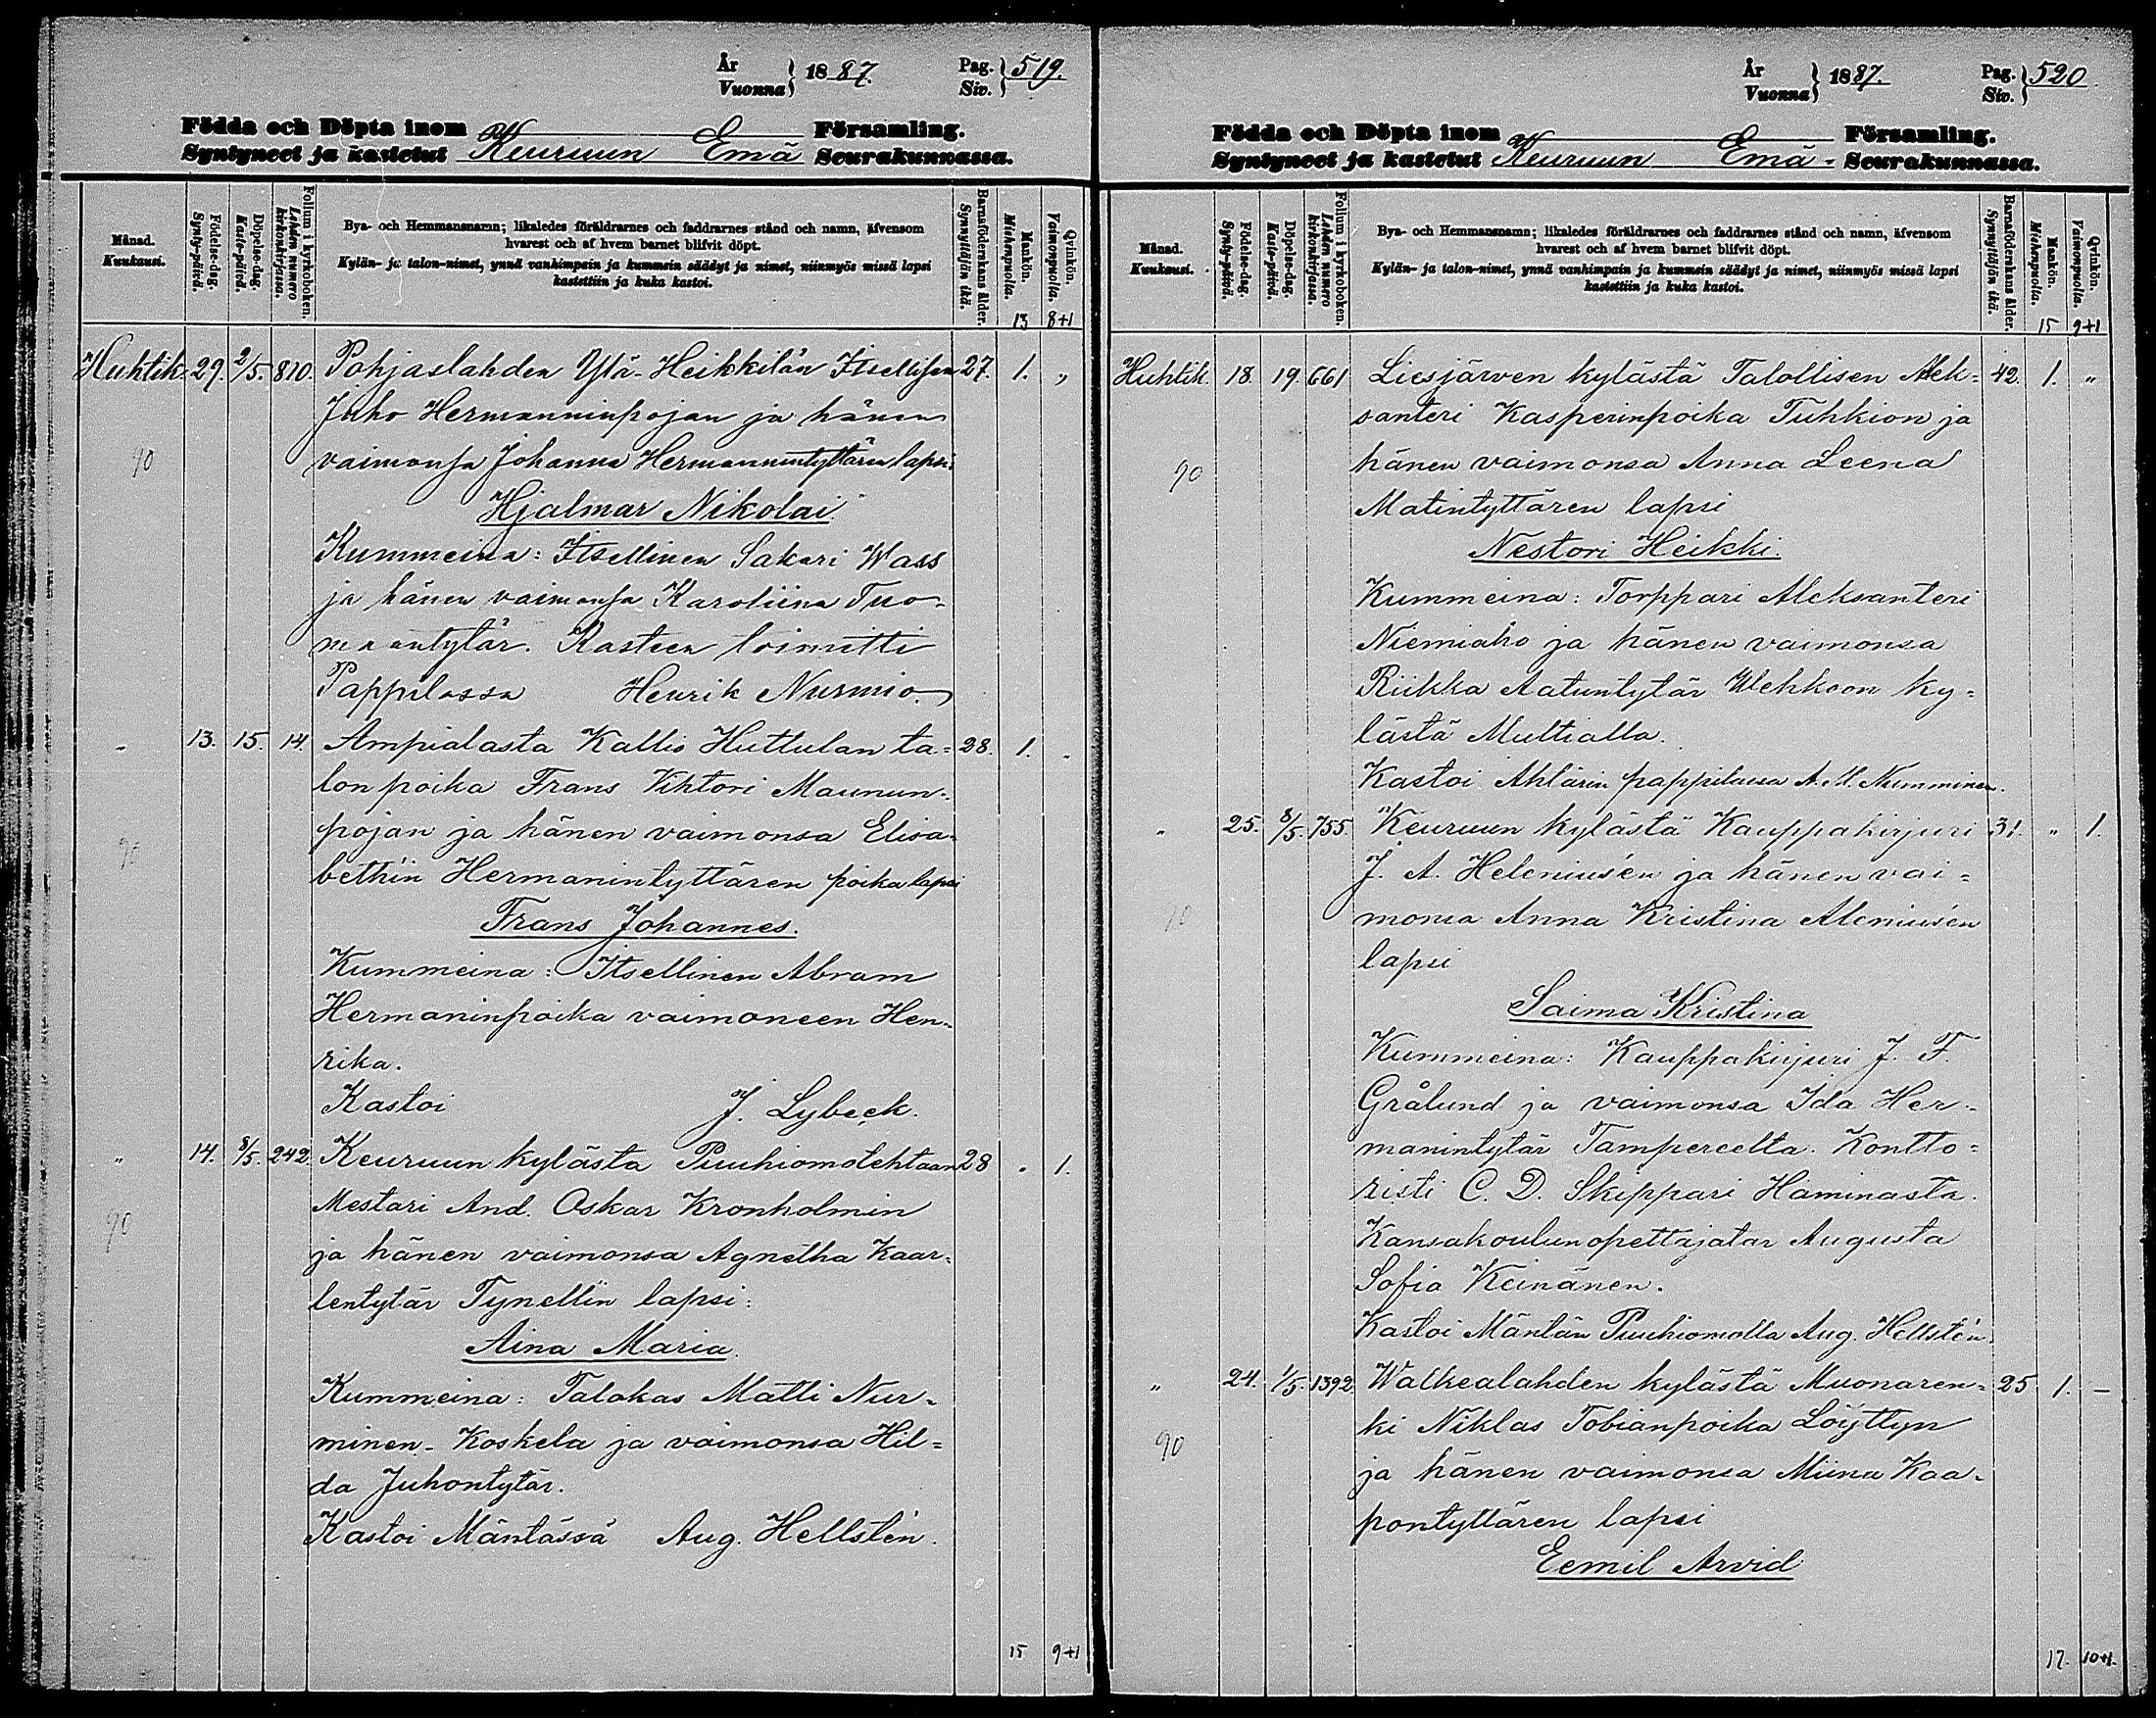 År
Vuonna } 1887. Pag.
Siv. } 519.
Födda och Döpta inom Församling.
Syntyneet ja kastetut Keuruun Emä Seurakunnassa.
Månad.
Kuukausi.
Födelse-dag.
Synty-päivä.
Döpelse-dag.
Kaste-päivä.
Folium i kyrkoboken.
Lehden numero
kirkonkirjassa.
Bya- och Hemmansnamn; likaledes föräldrarnes och faddrarnes stånd och namn, äfvensom
hvarest och af hvem barnet blifvit döpt.
Kylän- ja talon-nimet, ynnä vanhimpain ja kummein säädyt ja nimet, niinmyös missä lapsi
kastettiin ja kuka kastoi.
Barnaföderskans ålder.
Synnyttäjän ikä.
Mankön.
Miehenpuolta.
Qvinkön.
Vaimonpuolta.
13 8+1
Huhtik. 29. 2/5. 810. Pohjaslahden Ylä-Heikkilän Itsellisen 27. 1. „
Juho Hermanninpojan ja hänen
90 vaimonsa Johanna Hermannintyttären lapsi:
Hjalmar Nikolai
Kummeina: Itsellinen Sakari Wass
ja hänen vaimonsa Karoliina Tuo-
maantytär. Kasteen toimitti
Pappilassa Henrik Nurmio.
„ 13. 15. 14. Ampialasta Kallio Huttulan ta= 28. 1. „
lonpoika Frans Vihtori Maunun-
pojan ja hänen vaimonsa Elisa-
90 beth'in Hermanintyttären poikalapsi
Frans Johannes.
Kummeina: Itsellinen Abram
Hermaninpoika vaimoneen Hen-
rika.
Kastoi J. Lybeck.
„ 14. 8/5. 242. Keuruun kylästa Puuhiomotehtaan 28 „ 1.
Mestari And. Oskar Kronholmin
90 ja hänen vaimonsa Agnetha Kaar-
lentytär Tynellin lapsi:
Aina Maria.
Kummeina: Talokas Matti Nur-
minen-Koskela ja vaimonsa Hil=
da Juhontytär.
Kastoi Mäntässä Aug. Hellstén.
15 9+1
År
Vuonna } 1887. Pag.
Siv. } 520
Födda och Döpta inom Församling.
Syntyneet ja kastetut Keuruun Emä- Seurakunnassa.
Månad.
Kuukausi.
Födelse-dag.
Synty-päivä.
Döpelse-dag.
Kaste-päivä.
Folium i kyrkoboken.
Lehden numero
kirkonkirjassa.
Bya- och Hemmansnamn; likaledes föräldrarnes och faddrarnes stånd och namn, äfvensom
hvarest och af hvem barnet blifvit döpt.
Kylän- ja talon-nimet, ynnä vanhimpain ja kummein säädyt ja nimet, niinmyös missä lapsi
kastettiin ja kuka kastoi.
Barnaföderskans ålder.
Synnyttäjän ikä.
Mankön.
Miehenpuolta.
Qvinkön.
Vaimonpuolta.
15 9+1
Huhtik. 18. 19. 661 Liesjärven kylästä Talollisen Alek= 42. 1. „
santeri Kasperinpoika Tuhkion ja
90 hänen vaimonsa Anna Leena
Matintyttären lapsi
Nestori Heikki.
Kummeina: Torppari Aleksanteri
Niemiaho ja hänen vaimonsa
Riikka Aatuntytär Wehkoon ky=
lästä Multialla.
Kastoi Ahtärin pappilassa A. M. Numminen.
„ 25. 8/5. 755. Keuruun kylästä Kauppakirjuri 31. „ 1.
J. A. Helenius'en ja hänen vai=
90 monsa Anna Kristina Alenius'en
lapsi
Saima Kristina
Kummeina: Kauppakirjuri J. F.
Grålund ja vaimonsa Ida Her-
manintytär Tampereelta. Kontto=
risti C. D. Skippari Haminasta.
Kansakoulunopettajatar Augusta
Sofia Keinänen.
Kastoi Mäntän Puuhiomolla Aug. Hellstén.
„ 24. 1/5. 1392 Walkealahden kylästä Muonaren= 25 1. –
ki Niklas Tobianpoika Löyttyn
90 ja hänen vaimonsa Miina Kaa-
pontyttären lapsi
Eemil Arvid
17. 10+1.